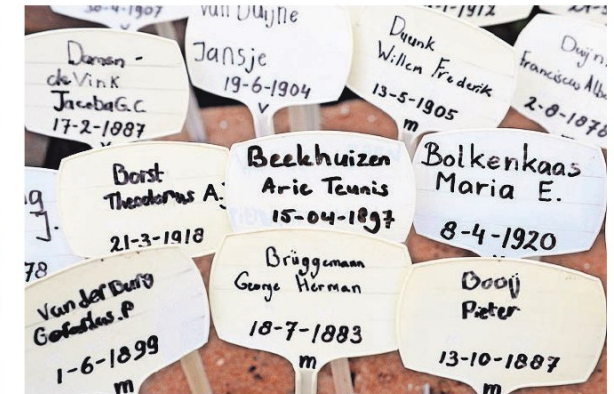 30-4-1907
van Duijne
Jansje
19-6-1904
v
Duunk
Willem Frederik
13-5-1905
m
-1-1912
Duijn
Franciscus Albe
2-8-1878
Damen -
de Vink
Jacoba G.C
17-2-1887
v
g
J.
78
Borst
Theodorus A.J
21-3-1918
Beekhuizen
Arie Teunis
15-04-1897
Bolkenkaas
Maria E.
8-4-1920
van der Burg
P
1-6-1899
m
Brüggemann
George Herman
18-7-1883
m
Booij
Pieter
13-10-1887
m